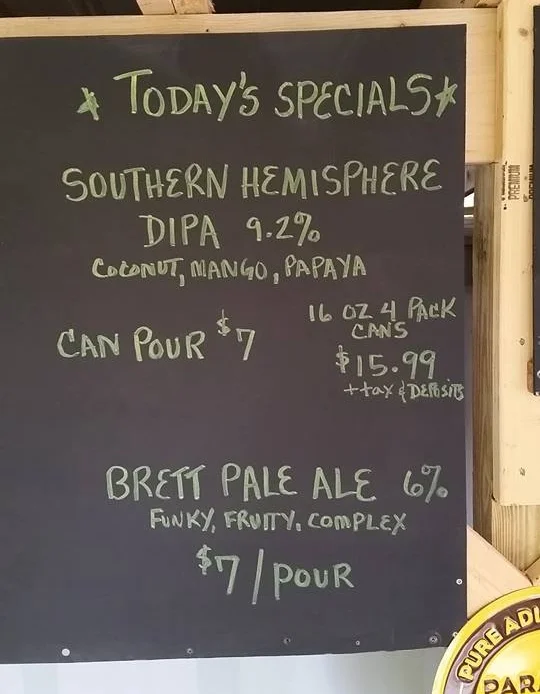 TODAY'S SPECIALS
SOUTHERN HEMISPHERE
DIPA 9.2%
COCONUT, MANGO, PAPAYA
CAN POUR $7
16 OZ 4 PACK
CANS
$15.99
+tax & DEPOSITS
BRETT PALE ALE 6%
FUNKY, FRUITY, COMPLEX
$7/POUR
PREMIUM
PURE